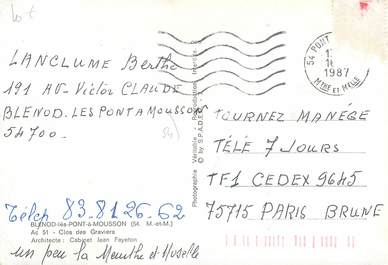 LANCLUME Berthe
191 AV- Victor CLAUDE
BLENOD-LES PONT A MOUSSON
54700-
54
Télép 83-81-26-62
BLENOD-lès-PONT-à-MOUSSON (54. M.-et-M.)
Ac 51 - Clos des Graviers
Architecte : Cabinet Jean Fayeton
un peu la Meurthe et Moselle
Photographie Véritable - Reproduction Interdite
© by S.P.A.D.E.M.
54 PONT
1987
MTHE ET MELLE
TOURNEZ MANÉGE
TÉLÉ 7 JOURS
TF1 CEDEX 9645
75715 PARIS BRUNE